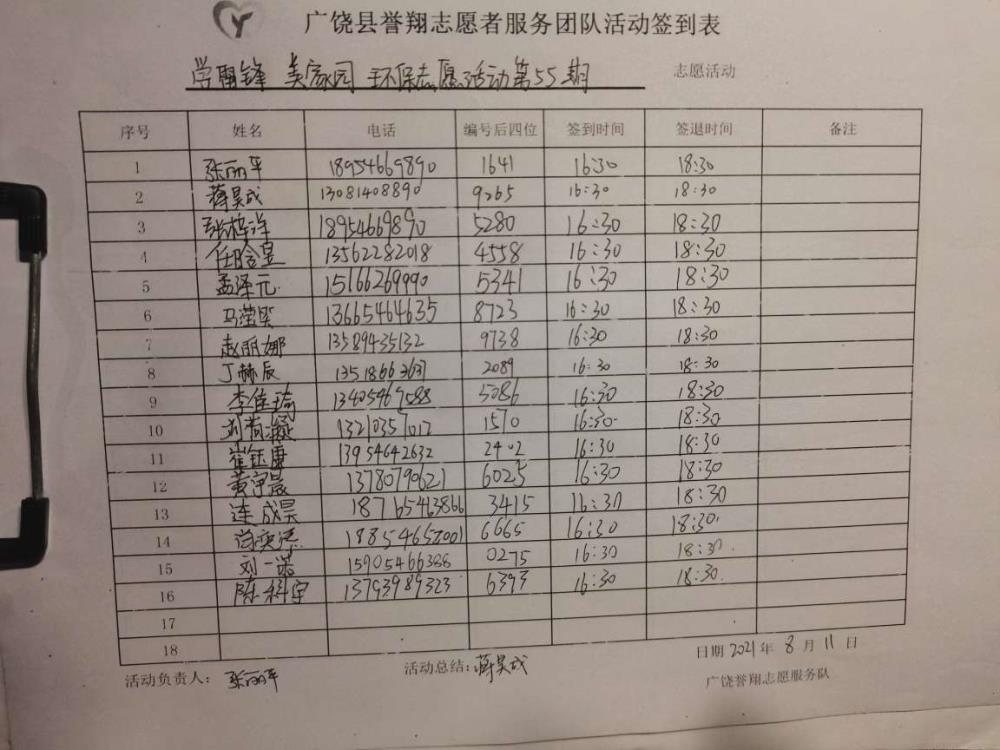 广饶县誉翔志愿者服务团队活动签到表
学雷锋 美家园 环保志愿活动第55期 志愿活动
序号 姓名 电话 编号后四位 签到时间 签退时间 备注
1 张丽平 18954669890 1641 16:30 18:30
2 蒋昊成 13081408890 9265 16:30 18:30
3 张梓洋 18954669890 5280 16:30 18:30
4 任晗昱 13562282018 4558 16:30 18:30
5 孟泽元 15166269990 5341 16:30 18:30
6 马滢 13665464635 8723 16:30 18:30
7 赵丽娜 13589435132 9738 16:30 18:30
8 丁赫辰 2089 16:30 18:30
9 李佳琦 5086 16:30 18:30
10 刘 1570 16:30 18:30
11 崔钰康 13954642632 2402 16:30 18:30
12 黄宇晟 13780790621 6025 16:30 18:30
13 连成昊 18765463866 3415 16:30 18:30
14 6665 16:30 18:30
15 刘一诺 0275 16:30 18:30
16 陈科宇 13793989323 6393 16:30 18:30
17
18
日期 2021年 8月 11日
活动负责人: 张丽平 活动总结: 蒋昊成
广饶誉翔志愿服务队